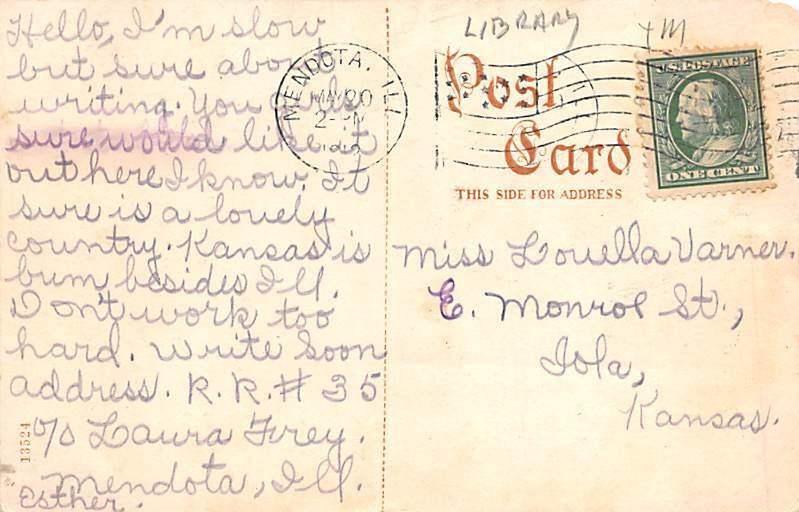 Hello, I'm slow
but sure about
writing. You girls
sure would like it
out here I know. It
sure is a lovely
country. Kansas is
bum besides Ill.
Dont work too
hard. Write soon
address. R. R. # 35
c/o Laura Frey.
Mendota, Ill.
Esther.
13524
LIBRARY
MENDOTA, ILL
2-PM
Post
Card
THIS SIDE FOR ADDRESS
U.S. POSTAGE
ONE CENT
Miss Louella Varner.
E. Monroe St.,
Iola,
Kansas.